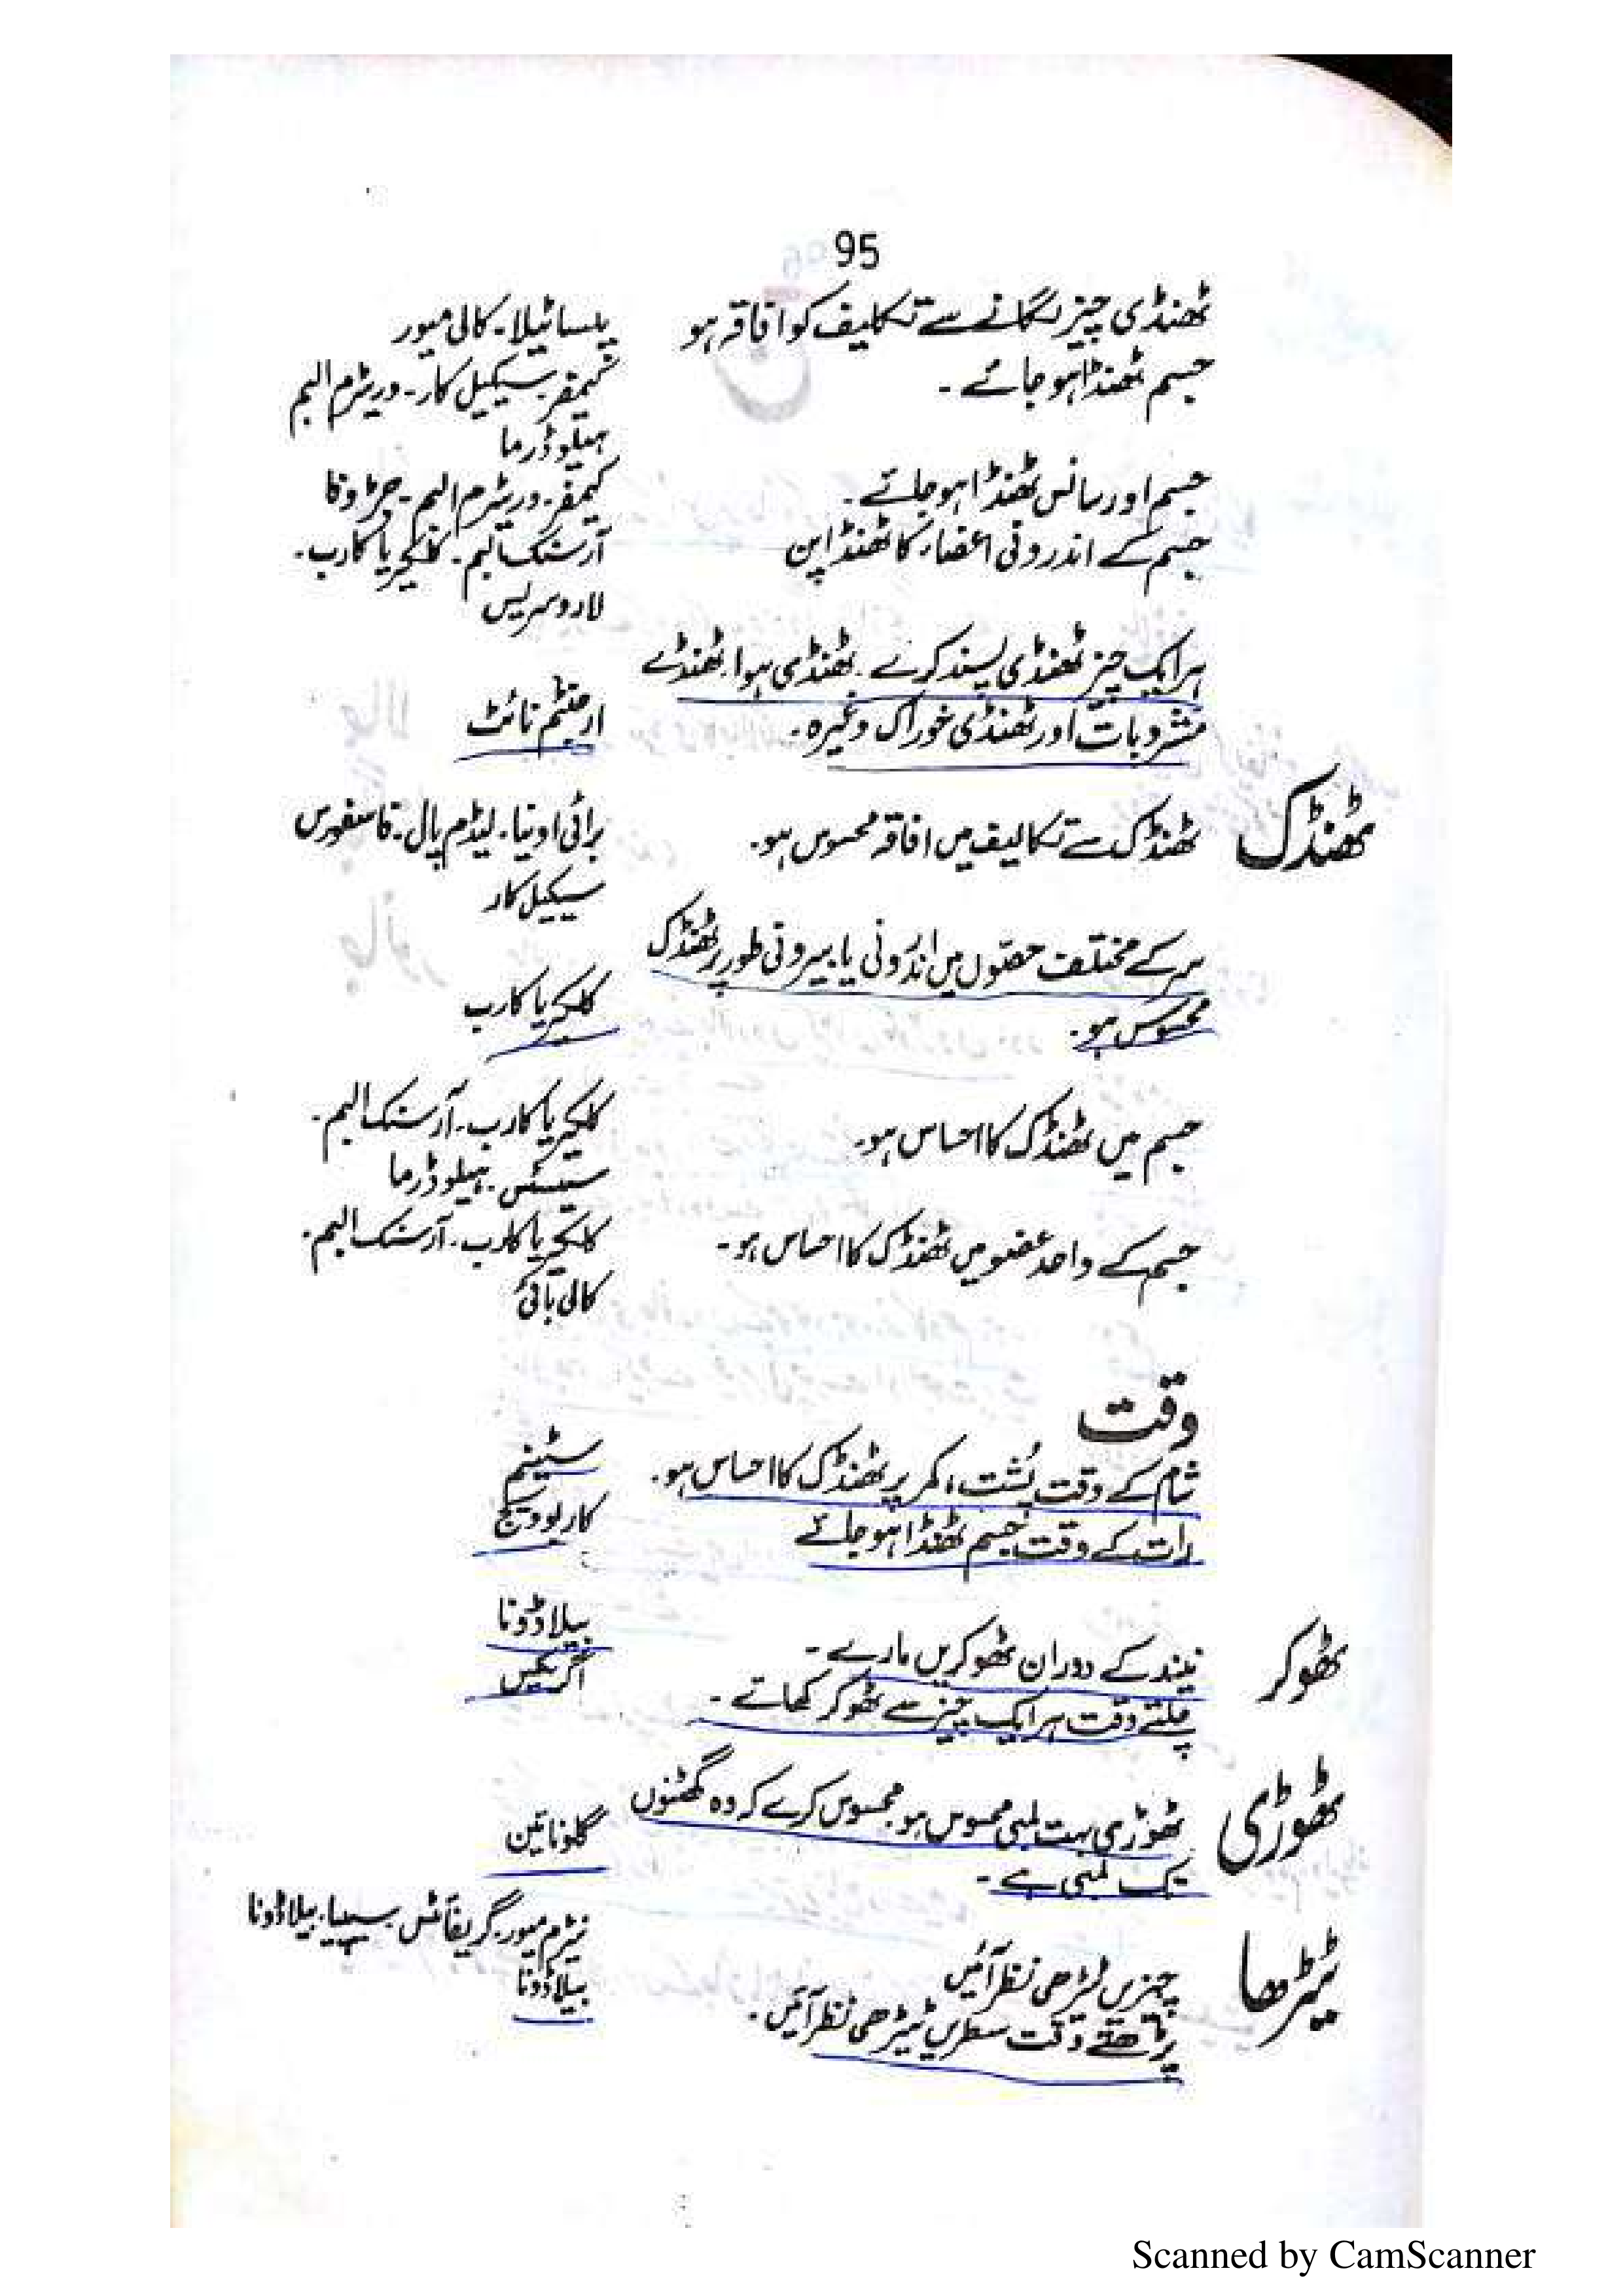 95
ٹھنڈی چیز لگانے سے تکلیف کو افاقہ ہو
پلساٹیلا۔ کالی میور
جسم ٹھنڈا ہو جائے ۔
کیمفر۔ سیکیل کار۔ وریٹرم البم
ہیلوڈرما
جسم اور سانس ٹھنڈا ہو جائے ۔
کیمفر۔ وریٹرم البم۔
جسم کے اندرونی اعضاء کا ٹھنڈا پن
آرسنک البم۔ کلکیریا کارب۔
لاروسریس
ہر ایک چیز ٹھنڈی پسند کرے ۔ ٹھنڈی ہوا، ٹھنڈے
مشروبات اور ٹھنڈی خوراک وغیرہ ۔
ارجنٹم نائٹ
ٹھنڈک
ٹھنڈک سے تکالیف میں افاقہ محسوس ہو۔
برائی اونیا۔ لیڈم پال۔ فاسفورس
سیکیل کار
سر کے مختلف حصّوں میں اندرونی یا بیرونی طور پر ٹھنڈک
محسوس ہو۔
کلکیریا کارب
جسم میں ٹھنڈک کا احساس ہو۔
کلکیریا کارب۔ آرسنک البم۔
سیسٹس۔ ہیلوڈرما
جسم کے واحد عضو میں ٹھنڈک کا احساس ہو۔
کلکیریا کارب۔ آرسنک البم۔
کالی بائی
وقت
شام کے وقت پُشت، کمر پر ٹھنڈک کا احساس ہو۔
سٹینم
رات کے وقت جسم ٹھنڈا ہو جائے
کاربوویج
ٹھوکر
نیند کے دوران ٹھوکریں مارے ۔
بیلاڈونا
چلتے وقت ہر ایک چیز سے ٹھوکر کھائے ۔
اگریکس
ٹھوڑی
ٹھوڑی بہت لمبی محسوس ہو محسوس کرے کہ وہ گھٹنوں
تک لمبی ہے ۔
گلونائین
ٹیڑھا
چیزیں ٹیڑھی نظر آئیں
نیٹرم میور۔ گریفائٹس۔ سیپیا۔ بیلاڈونا
پڑھتے وقت سطریں ٹیڑھی نظر آئیں ۔
بیلاڈونا
Scanned by CamScanner